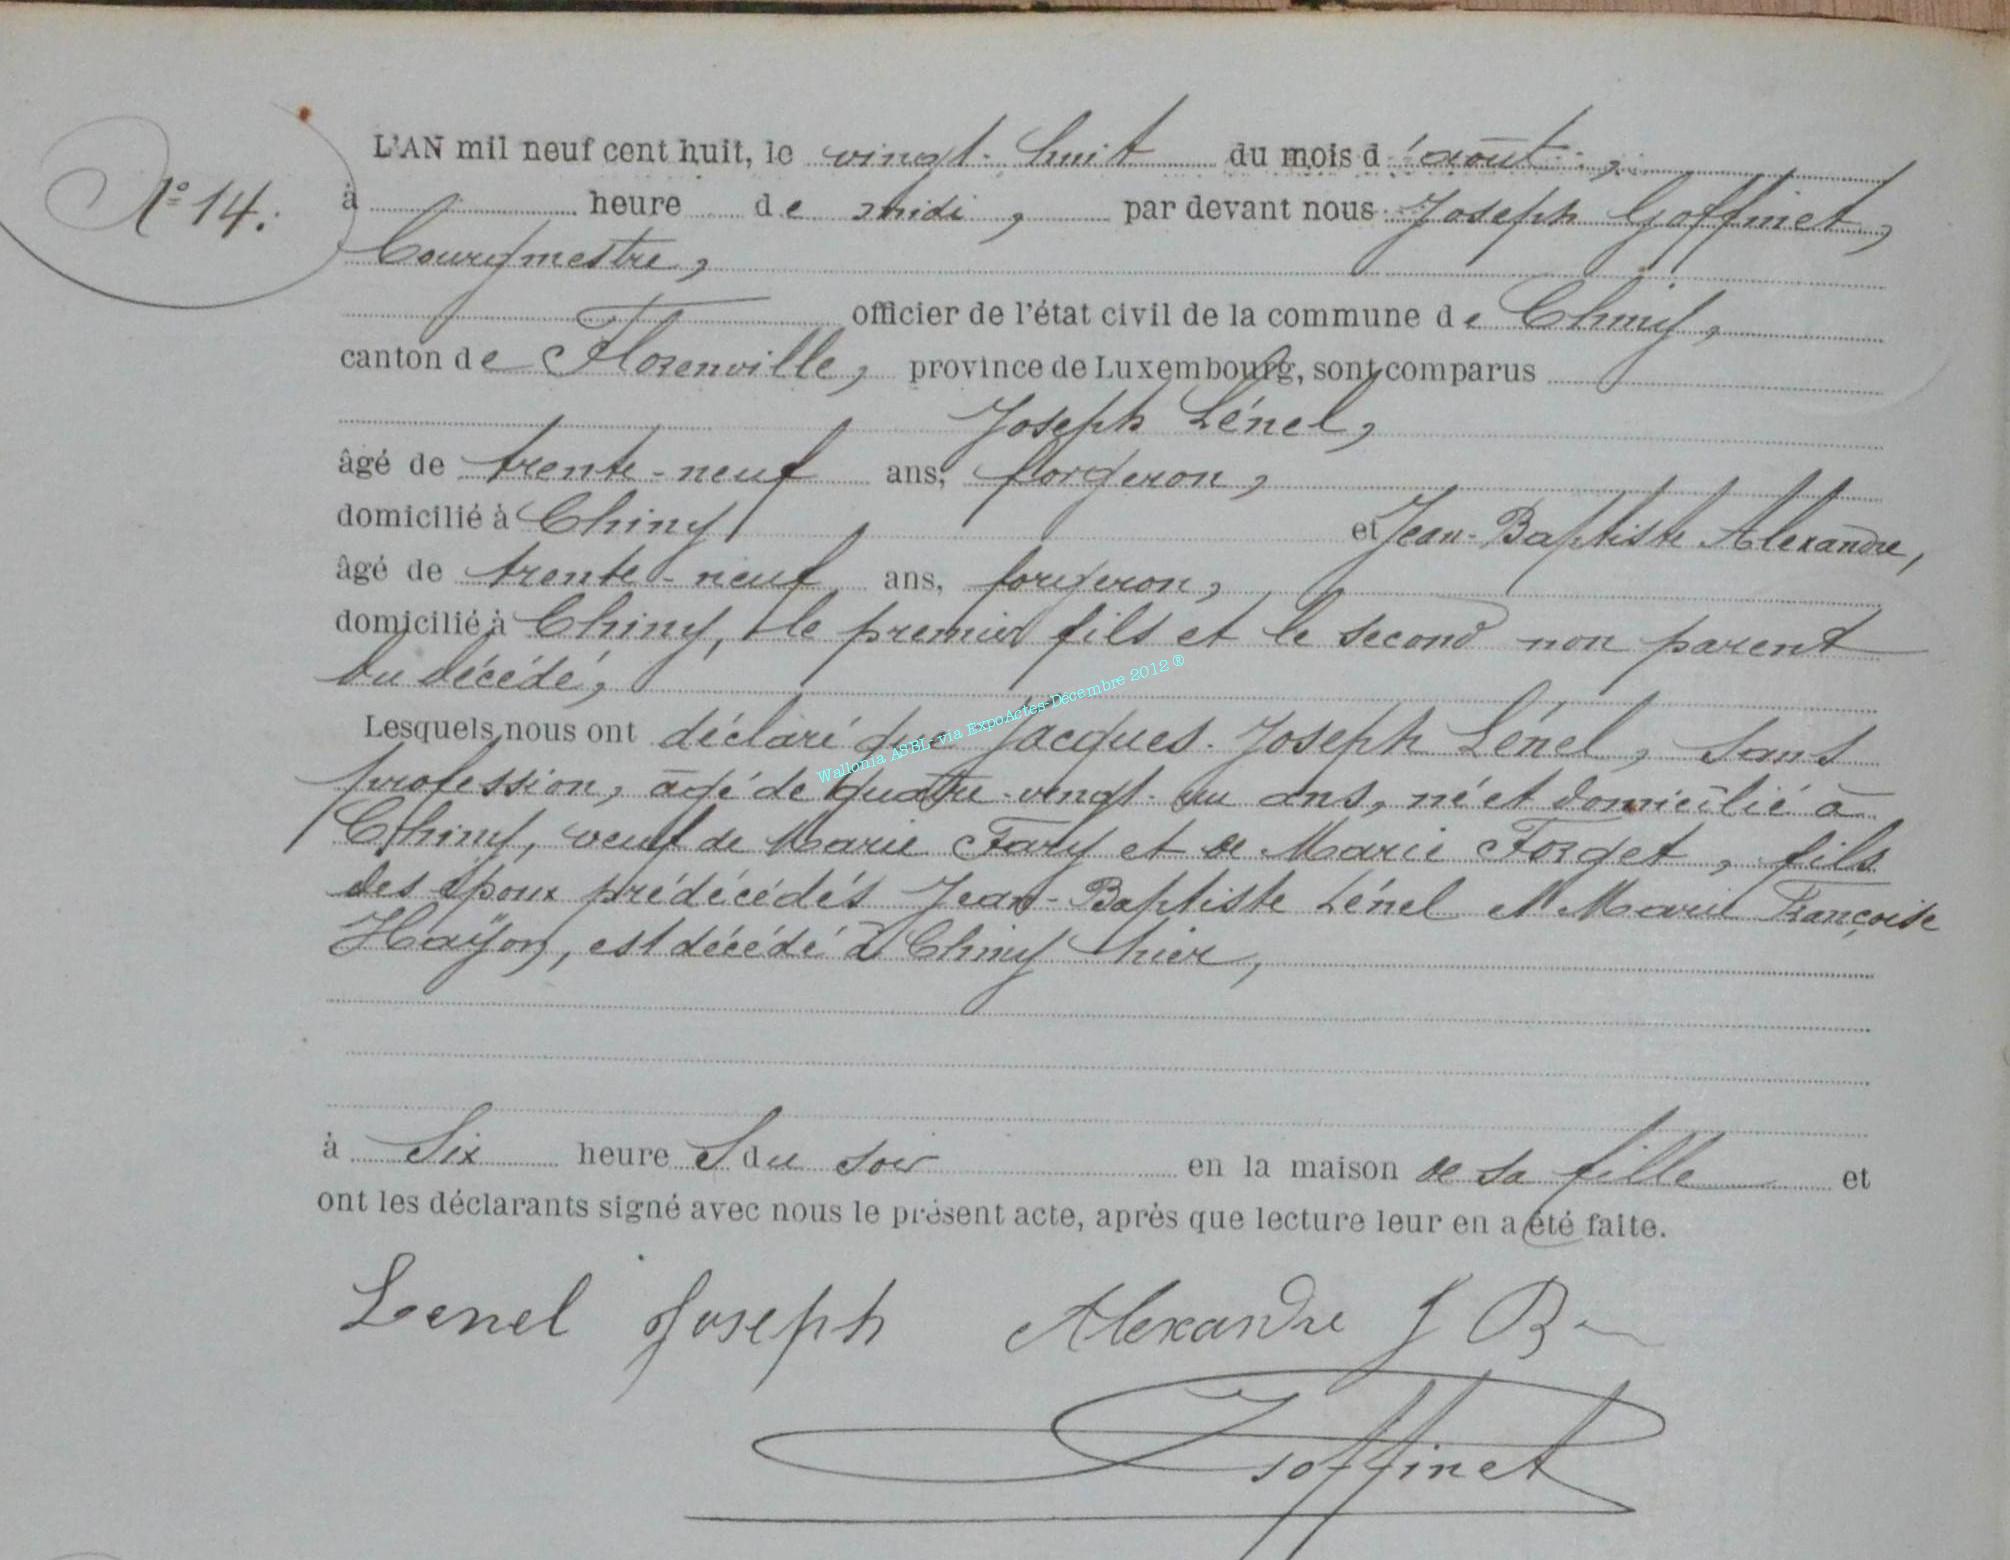 N° 14.
L'AN mil neuf cent huit, le vingt-huit du mois d'août,
à heure de midi, par devant nous Joseph Goffinet,
bourgmestre,
officier de l'état civil de la commune de Chiny,
canton de Florenville, province de Luxembourg, sont comparus
Joseph Lénel,
âgé de trente-neuf ans, forgeron,
domicilié à Chiny et Jean-Baptiste Alexandre,
âgé de trente-neuf ans, forgeron,
domicilié à Chiny, le premier fils et le second non parent
du décédé,
Lesquels nous ont déclaré que Jacques-Joseph Lénel, sans
profession, âgé de quatre-vingt-un ans, né et domicilié à
Chiny, veuf de Marie Fary et de Marie Forget, fils
des époux prédécédés Jean-Baptiste Lénel et Marie Françoise
Haÿon, est décédé à Chiny hier,
à Six heures du soir en la maison de sa fille et
ont les déclarants signé avec nous le présent acte, après que lecture leur en a été faite.
Lenel Joseph Alexandre J B
Goffinet
Wallonia ASBL- via ExpoActes-Décembre 2012 ®